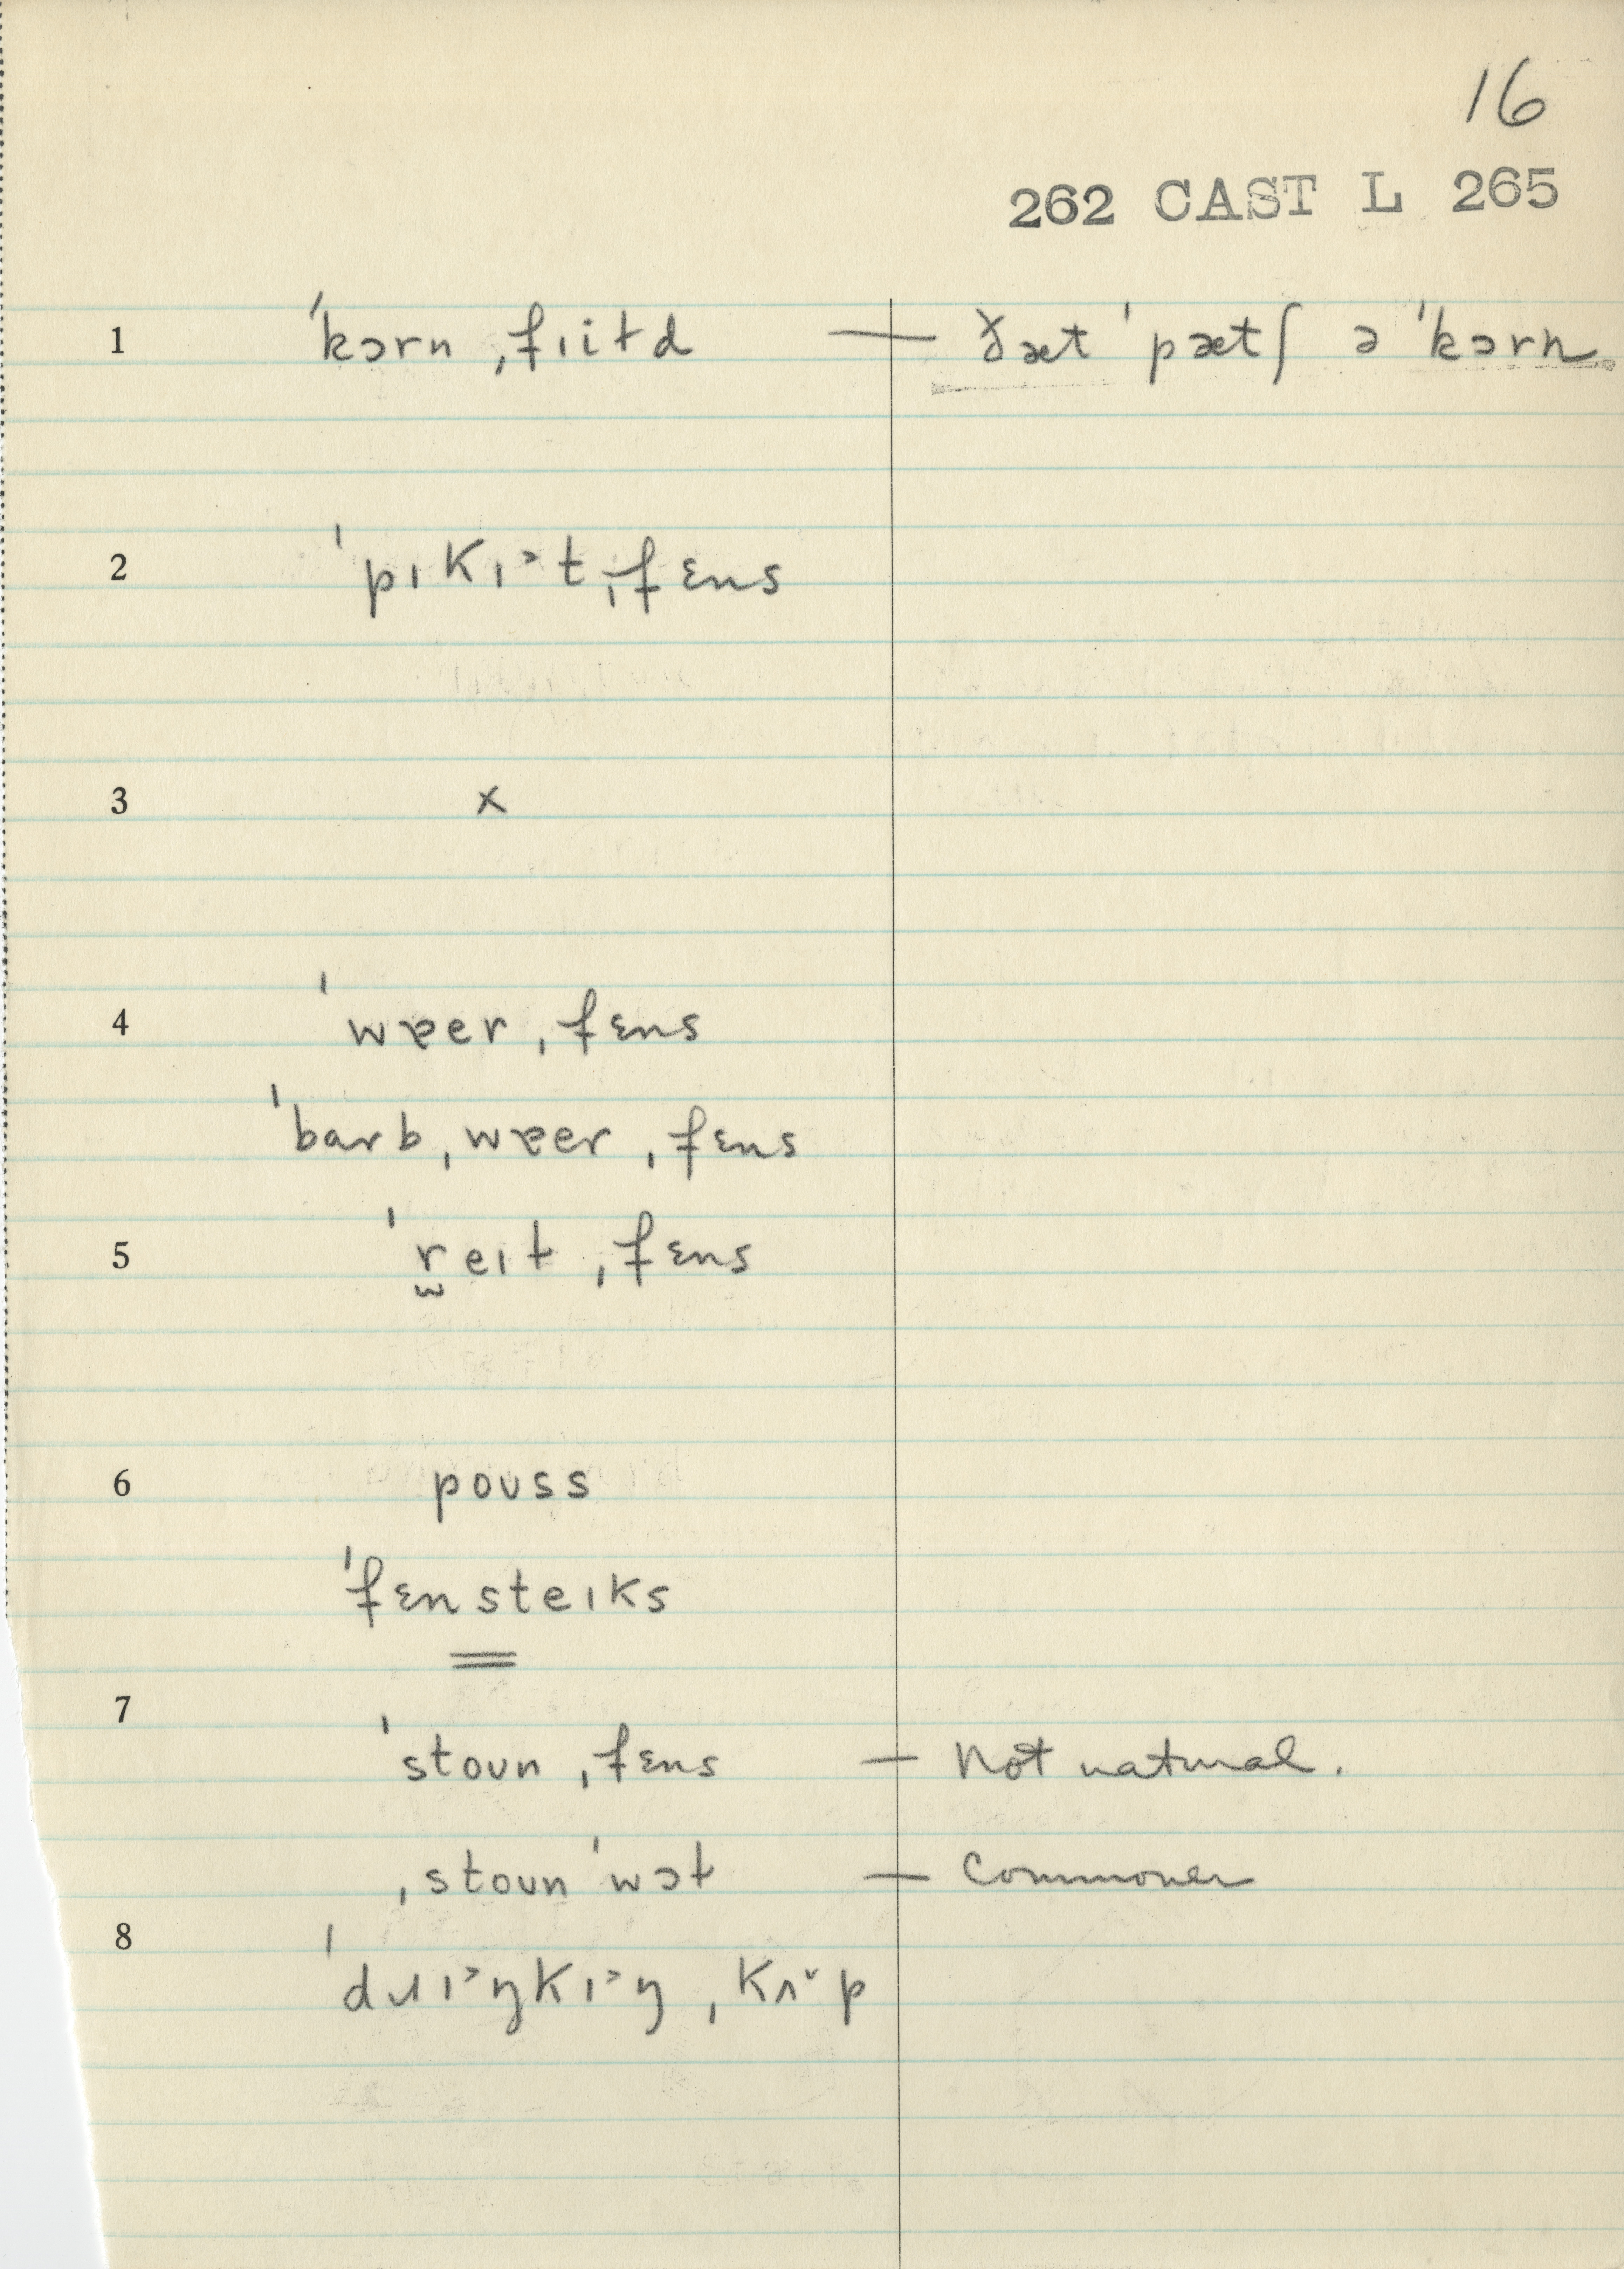 16
262 CAST L 265
1 ˈkɔrn ˌfɪiɫd — ðæt ˈpætʃ ə ˈkɔrn.
2 ˈpɪkɪ˃t ˌfɛns
3 x
4 ˈwɐer ˌfɛns
ˈbarb ˌwɐer ˌfɛns
5 ˈr̫eɪɫ ˌfɛns
6 poʊss
ˈfɛnsteɪks
7 ˈstoʊn ˌfɛns — Not natural.
ˌstoʊn ˈwɔɫ — Commoner
8 ˈdɹɪ˃ŋkɪ˃ŋ ˌkʌ˅p